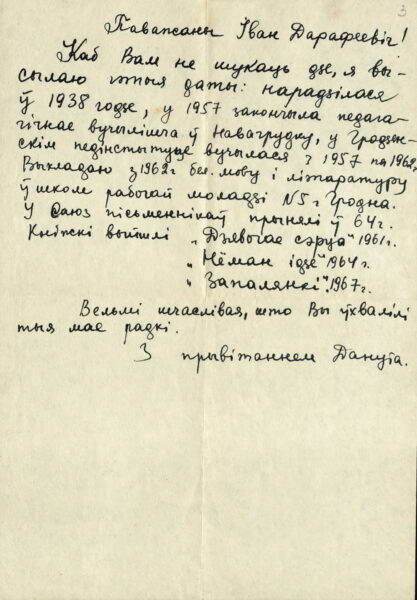 3
Паважаны Іван Дарафеевіч!
Каб Вам не шукаць дзе, я вы-
сылаю гэтыя даты: нарадзілася
ў 1938 годзе, у 1957 закончыла педага-
гічнае вучылішча ў Навагрудку, у Гродзен-
скім педінстытуце вучылася з 1957 па 1962,
Выкладаю з 1962 г бел. мову і літаратуру
ў школе рабочай моладзі N5 г Гродна.
У Саюз пісьменнікаў прынялі ў 64 г.
Кніжкі выйшлі „Дзявочае сэрца" 1961 г.
„Нёман ідзе" 1964 г.
„Запалянкі". 1967 г.
Вельмі шчаслівая, што Вы ўхвалілі
тыя мае радкі.
З прывітаннем Данута.